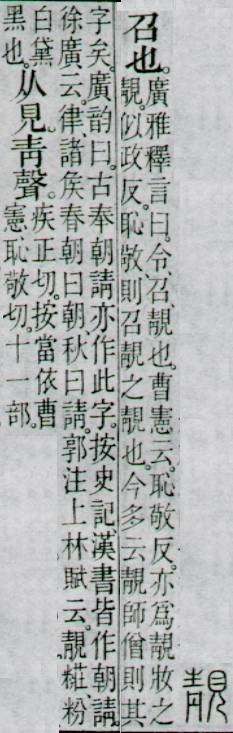 靚
召也。
廣雅釋言曰。令、召、靚也。曹憲云。恥敬反。亦爲靚妝之
靚。似政反。恥敬則召靚之靚也。今多云靚師僧則其
字矣。廣韵曰。古奉朝請亦作此字。按史記、漢書皆作朝請。
徐廣云。律諸矦春朝曰朝秋曰請。郭注上林賦云。靚糚、粉
白黛
黑也。
从見。靑聲。
疾正切。按當依曹
憲恥敬切。十一部。